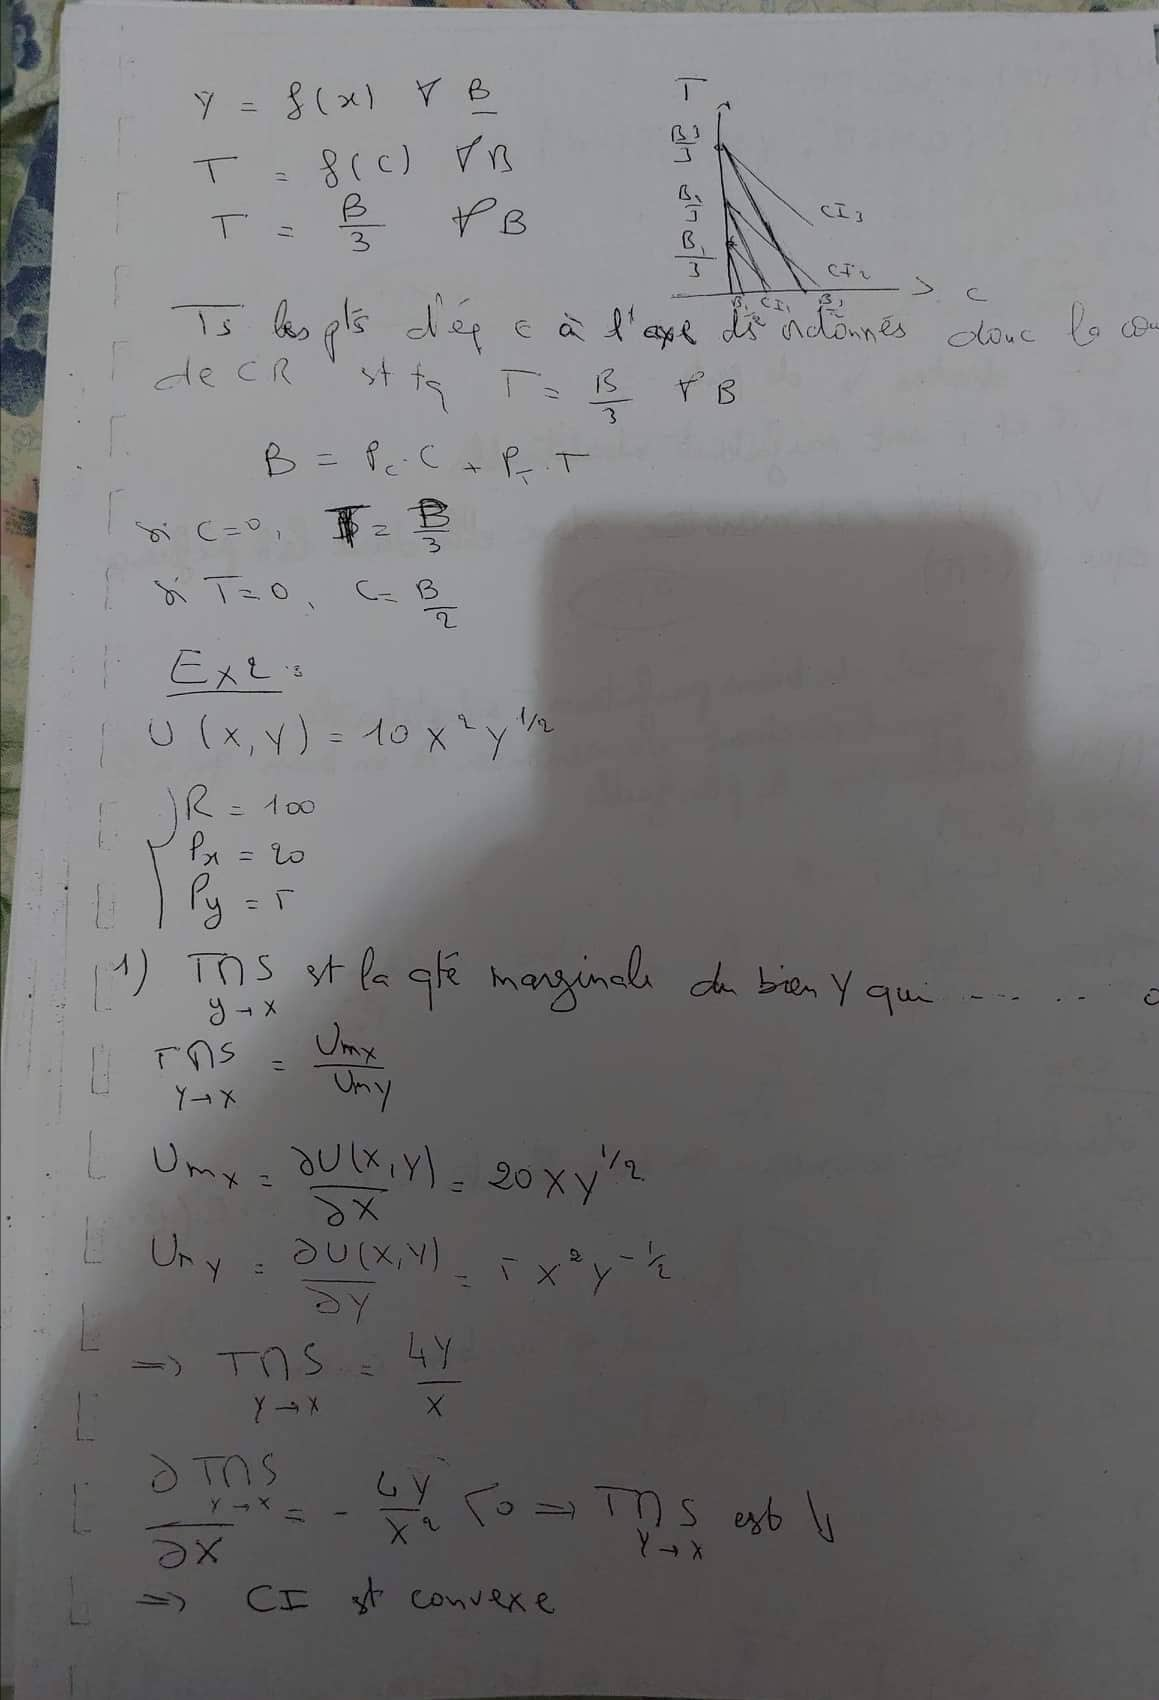 Y = f(x) ∀ B
T = f(C) ∀B
T = B/3 ∀B
T
B3/3
B2/3
B1/3
CI3
CI2
B1 CI1 B3/2
C
Ts les pts d'éq ∈ à l'axe des ordonnés donc la cou
de CR st tq T = B/3 ∀B
B = Pc.C + PT.T
si C=0, T = B/3
si T=0, C = B/2
Ex2 :
U(X,Y) = 10 X² Y^1/2
R = 100
Px = 20
Py = 5
1) TMS y→x st la qté marginale du bien Y qui ......
TMS Y→X = Umx/Umy
Umx = ∂U(X,Y)/∂X = 20XY^1/2
Umy = ∂U(X,Y)/∂Y = 5X²Y^-1/2
=> TMS Y→X = 4Y/X
∂TMS Y→X/∂X = - 4Y/X² <0 => TMS Y→X est ↓
=> CI st convexe